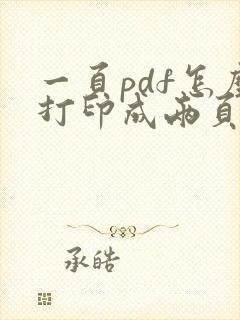 一頁pdf怎麼
打印成兩頁
承皓